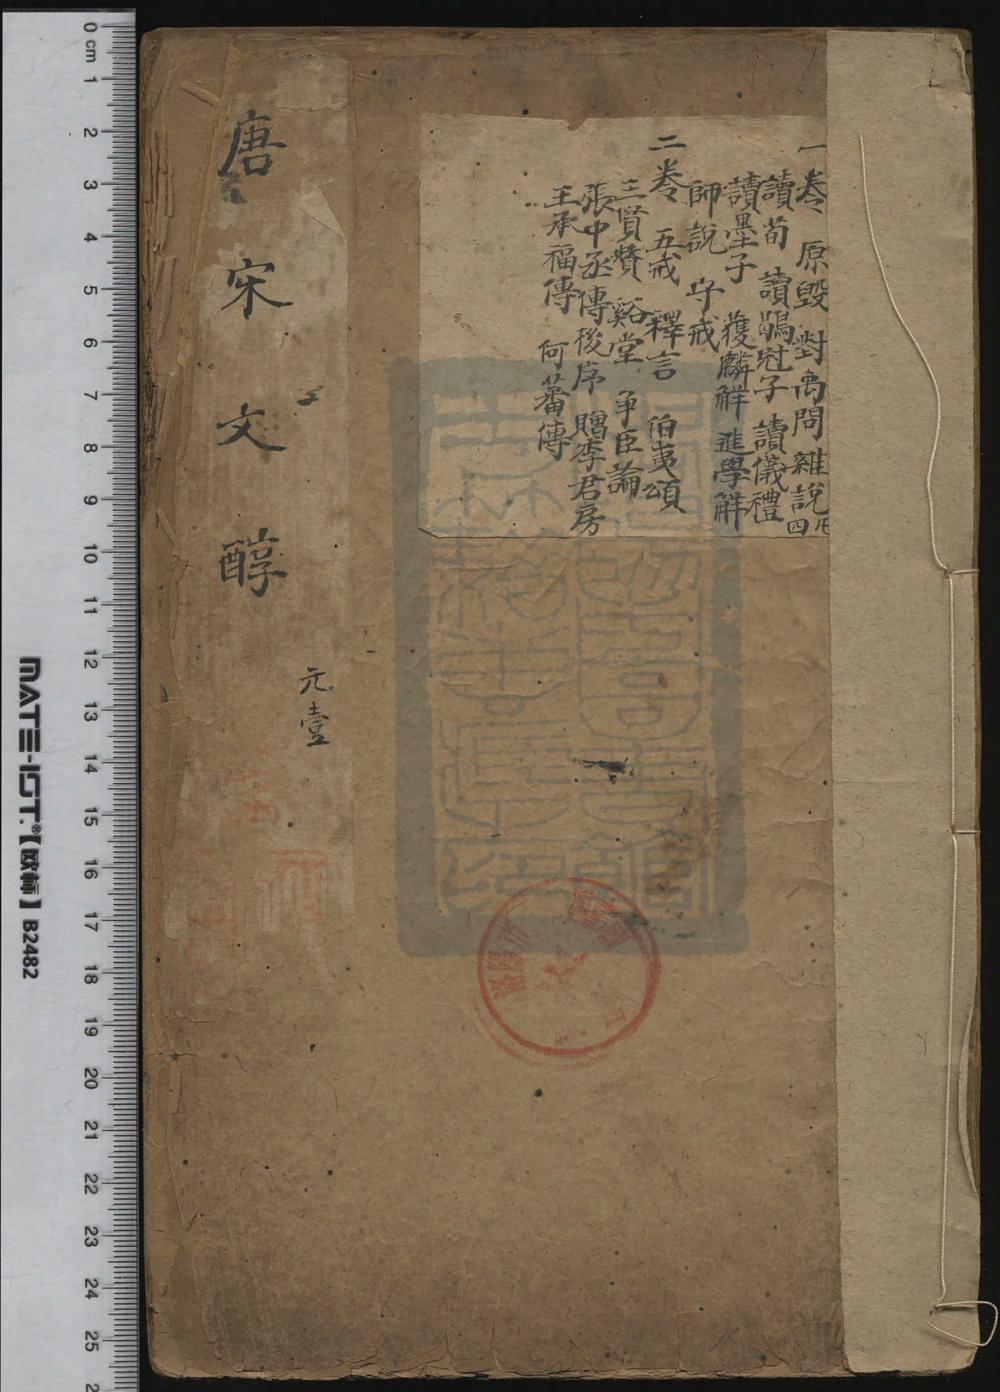 一卷 原毀 對禹問 雜說四
讀荀 讀鶡冠子 讀儀禮
讀墨子 獲麟解 進學解
師說 守戒
二卷 五戒 釋言 伯夷頌
三賢贊 谿堂 爭臣論
張中丞傳後序 贈李君房
王承福傳 何蕃傳
唐宋文醇
元壹
0 cm 1 2 3 4 5 6 7 8 9 10 11 12 13 14 15 16 17 18 19 20 21 22 23 24 25
MATE-IGT.®【欧标】B2482